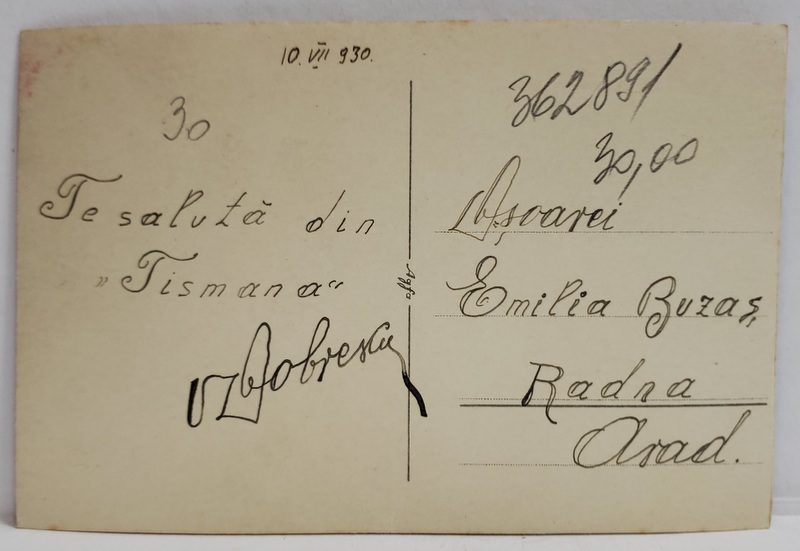 10. VII 930.
30
Te salută din
„Tismana“
Dobrescu
Agfa
362891
30,00
D.șoarei
Emilia Buzaș,
Radna
Arad.